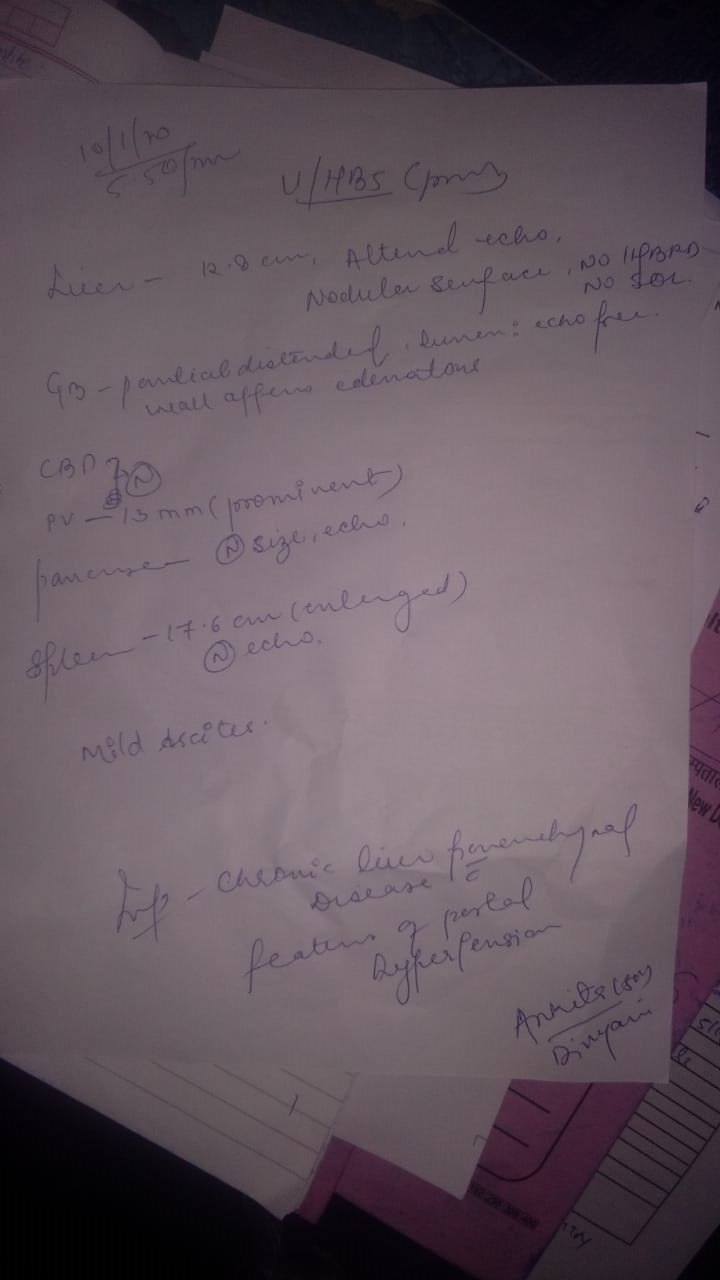 10/1/20
5.50pm
U/HBS (prov)
Liver - 12.8 cm, Altered echo,
Nodular surface, NO IHBRD
NO SOL
GB - partial distended, lumen: echo free.
wall appears edematous
CBD
N
PV - 13 mm (prominent)
pancreas - N size, echo.
Spleen - 17.6 cm (enlarged)
N echo.
Mild Ascites.
Imp - Chronic liver parenchymal
Disease c̄
features of portal
hypertension
Ankita (SR)
New D